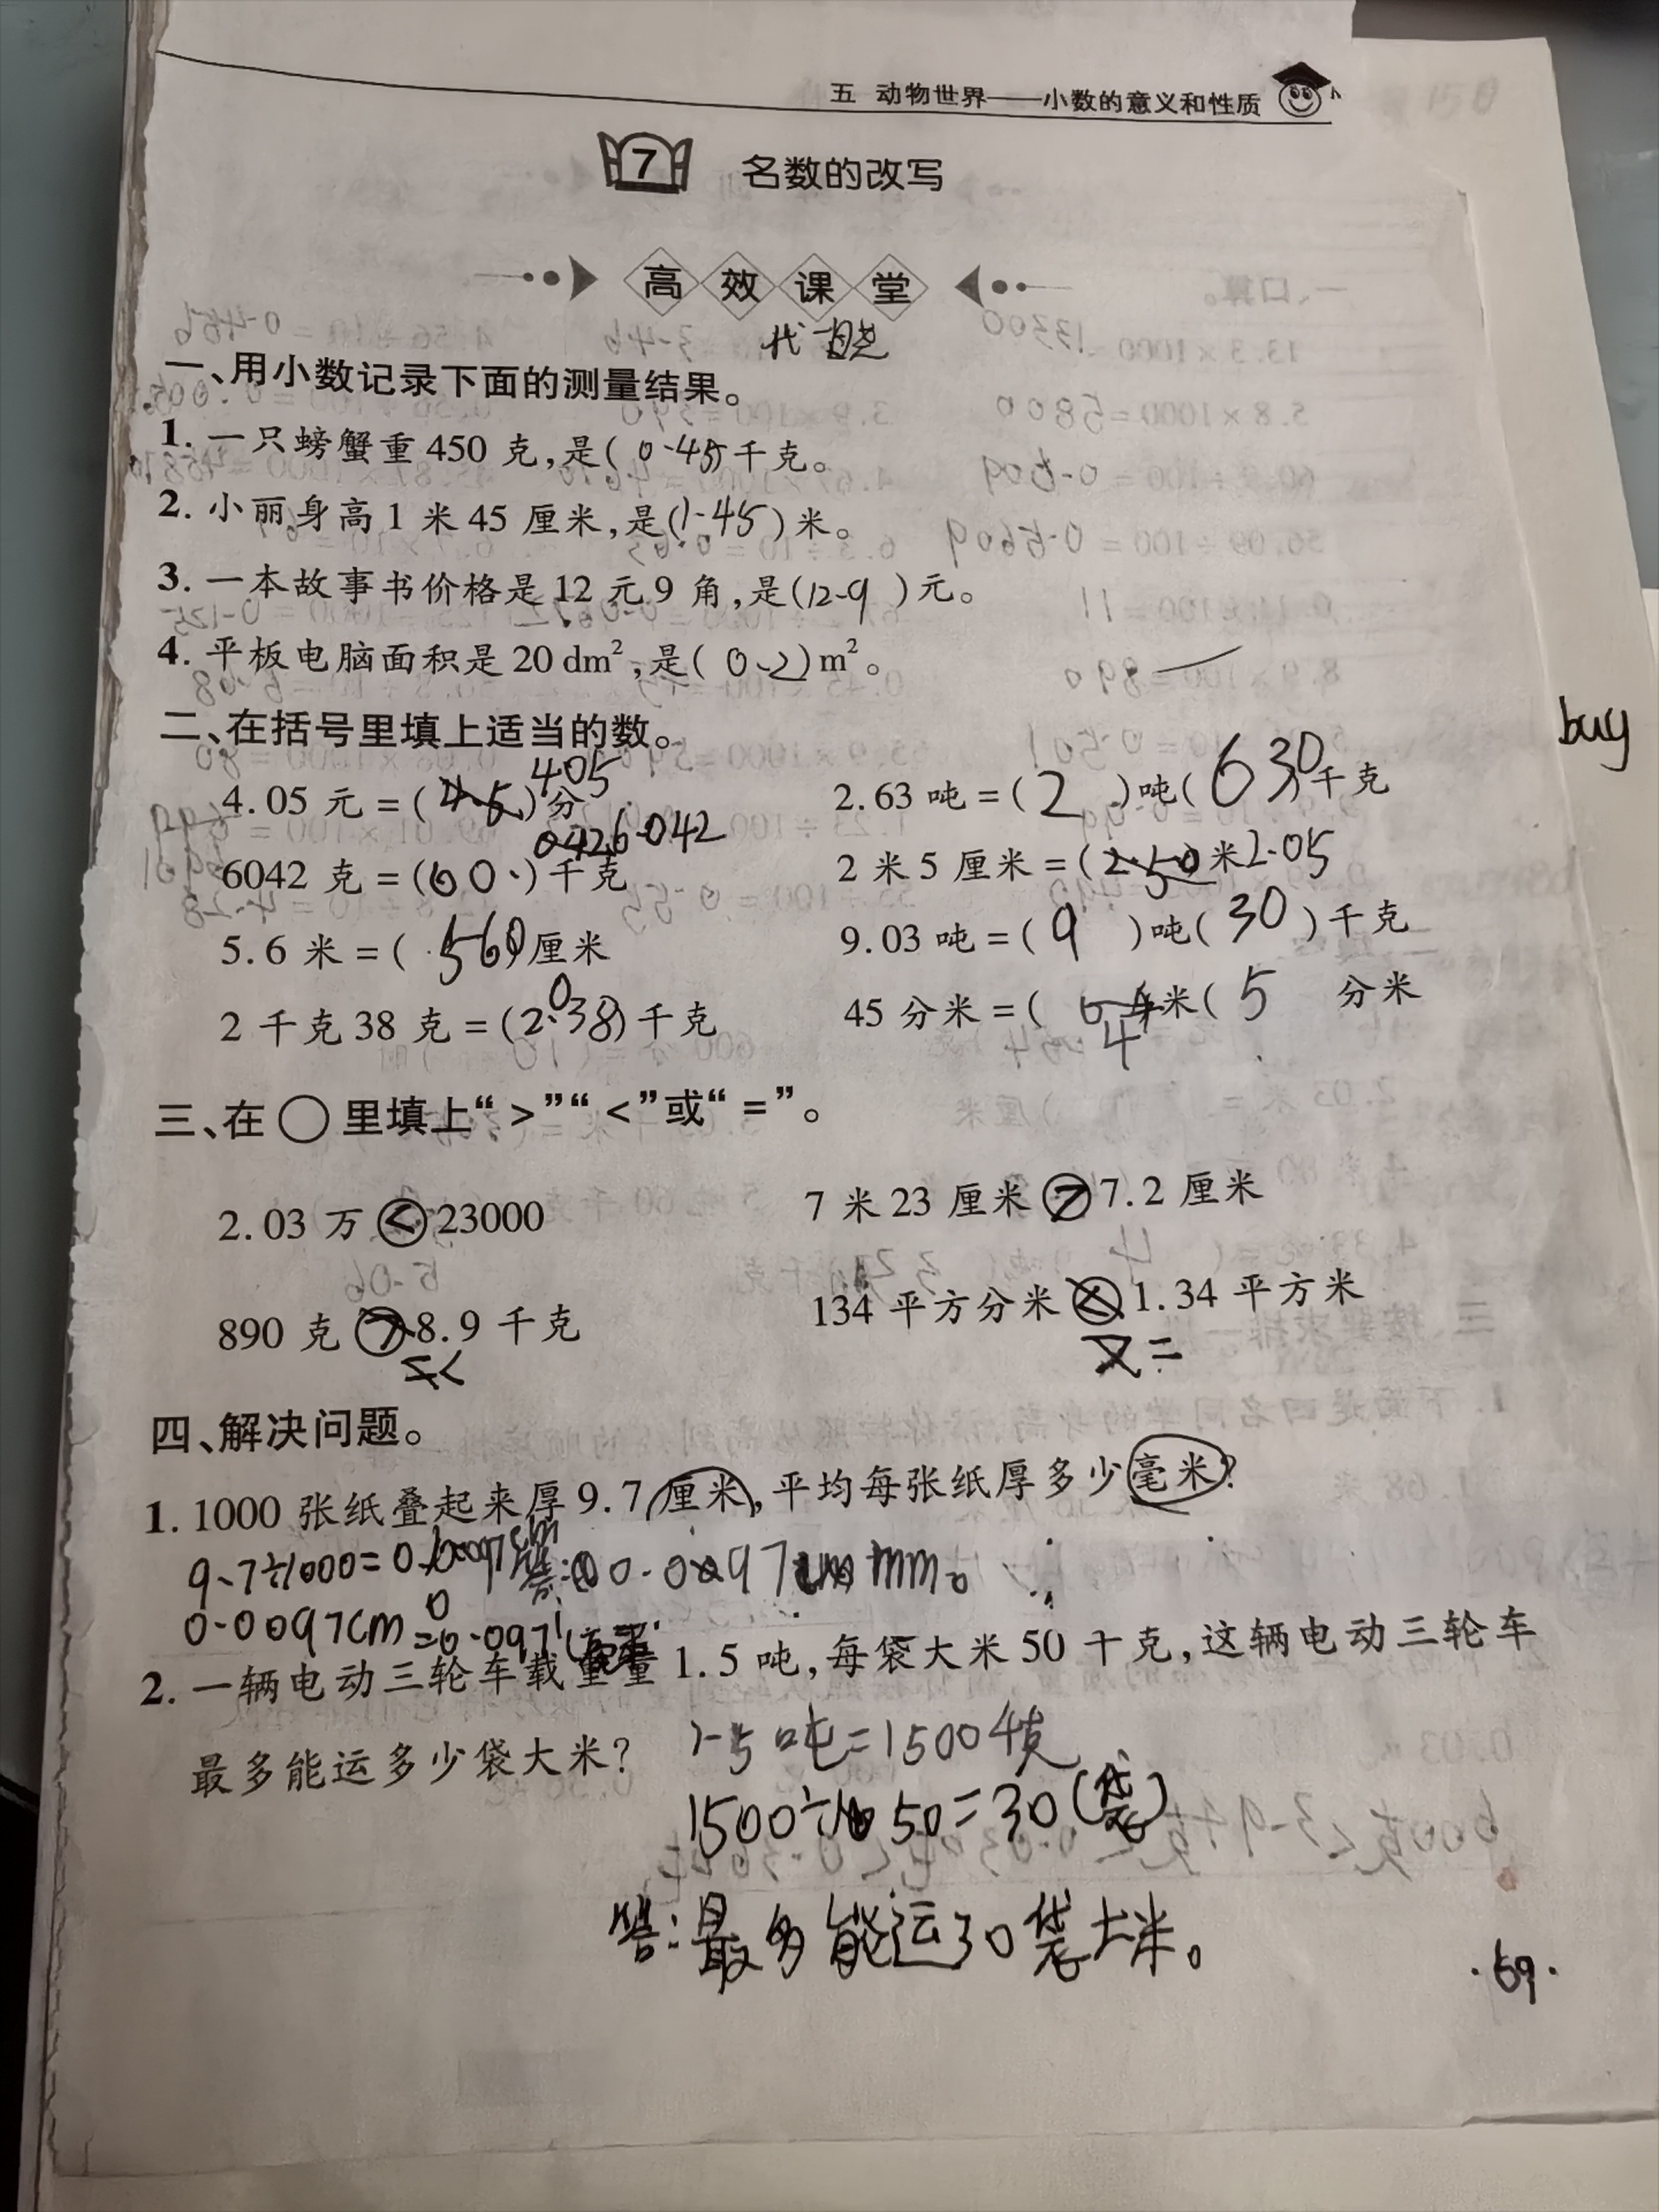 五 动物世界——小数的意义和性质
7 名数的改写
高效课堂
一、用小数记录下面的测量结果。
1. 一只螃蟹重 450 克,是(0.45)千克。
2. 小丽身高 1 米 45 厘米,是(1.45)米。
3. 一本故事书价格是 12 元 9 角,是(12.9)元。
4. 平板电脑面积是 20 dm²,是(0.2)m²。
二、在括号里填上适当的数。
405
4.05 元=( )分 2.63 吨=(2)吨(630)千克
buy
6.042
6042 克=(60.)千克 2 米 5 厘米=(2.50)米2.05
5.6 米=(560)厘米 9.03 吨=(9)吨(30)千克
2 千克 38 克=(2.038)千克 45 分米=( )米(5 分米
4
三、在○里填上“>”“<”或“=”。
2.03 万<23000 7 米 23 厘米>7.2 厘米
890 克>8.9 千克 134 平方分米<1.34 平方米
< =
四、解决问题。
1. 1000 张纸叠起来厚 9.7 厘米,平均每张纸厚多少毫米?
9.7÷1000=0.0097cm 答: 0.097 mm。
0.0097cm=0.097
2. 一辆电动三轮车载重量 1.5 吨,每袋大米 50 千克,这辆电动三轮车
最多能运多少袋大米?
1.5吨=1500千克
1500÷50=30(袋)
答:最多能运30袋大米。
·59·